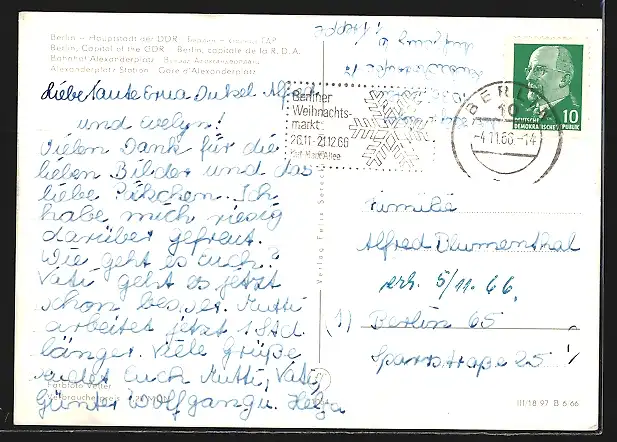 Berlin – Hauptstadt der DDR
Berlin, Capital of the GDR Berlin, capitale de la R.D.A.
Bahnhof Alexanderplatz
Alexanderplatz Station Gare d'Alexanderplatz
liebe Tante Erna Onkel Alfred
und Evelyn!
Vielen Dank für die
lieben Bilder und das
liebe Päkchen. Ich
habe mich riesig
darüber gefreut.
Wie geht es euch?
Vati geht es jetzt
schon besser. Mutti
arbeitet jetzt 1 Std.
länger. Viele Grüße
sendet Euch Mutti, Vati,
Günter Wolfgang u. Helga
Farbfoto Vetter
Verbraucherpreis MDN
Verlag Felix
Berliner
Weihnachts-
markt
26.11-21.12.66
Karl-Marx-Allee
BERLIN
10
-4.11.66.-14
10
DEUTSCHE
DEMOKRATISCHE REPUBLIK
Familie
Alfred Blumenthal
erh. 5/11.66.
(1) Berlin 65
Sparrstraße 25
III/18 97 B 6 66